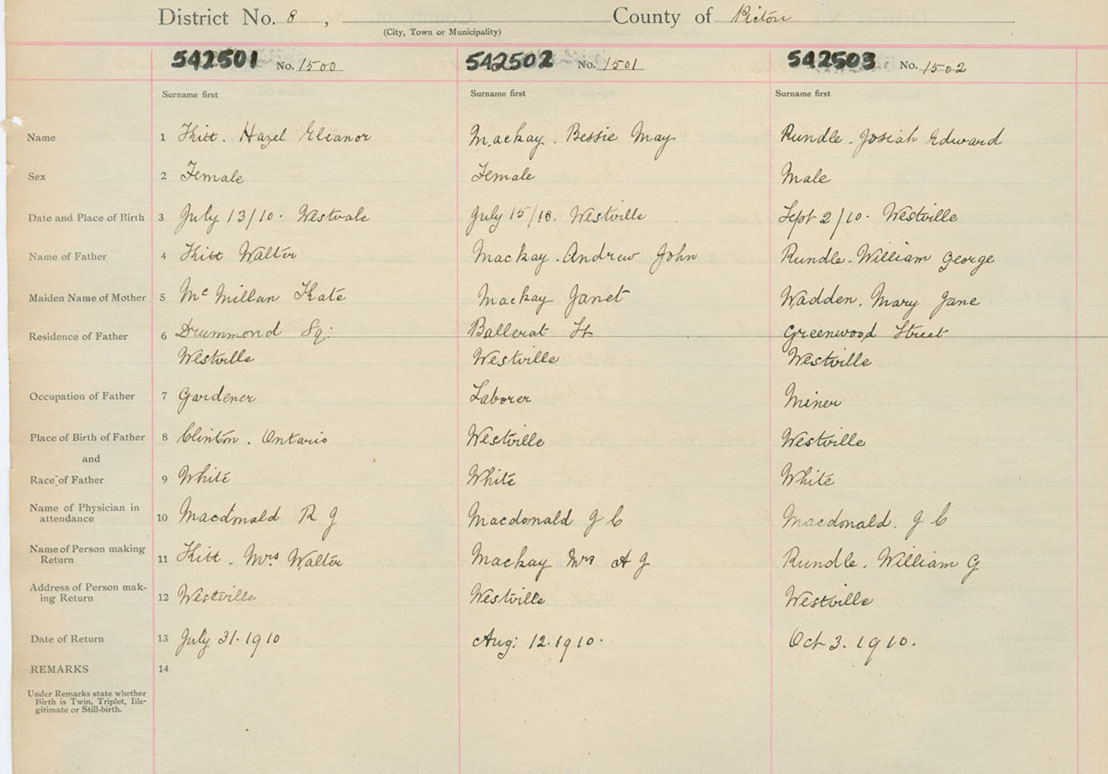 District No. 8, County of Pictou
(City, Town or Municipality)
542501 No. 1500 542502 No. 1501 542503 No. 1502
Surname first Surname first Surname first
Name 1 Hazel Eleanor Mackay. Bessie May Rundle. Josiah Edward
Sex 2 Female Female Male
Date and Place of Birth 3 July 13/10. July 15/10. Westville Sept 2/10. Westville
Name of Father 4 Walter Mackay. Andrew John Rundle. William George
Maiden Name of Mother 5 McMillan Kate Mackay Janet Wadden. Mary Jane
Residence of Father 6 Drummond Sq. Ballerat St Greenwood Street
Westville Westville Westville
Occupation of Father 7 Gardener Laborer Miner
Place of Birth of Father 8 Clinton. Ontario Westville Westville
and
Race of Father 9 White White White
Name of Physician in
attendance 10 Macdonald R J Macdonald J C Macdonald. J C
Name of Person making
Return 11 Mrs. Walter Mackay Mrs A J Rundle. William G
Address of Person mak-
ing Return 12 Westville Westville Westville
Date of Return 13 July 31. 1910 Aug: 12. 1910. Oct 3. 1910.
REMARKS 14
Under Remarks state whether
Birth is Twin, Triplet, Ille-
gitimate or Still-birth.